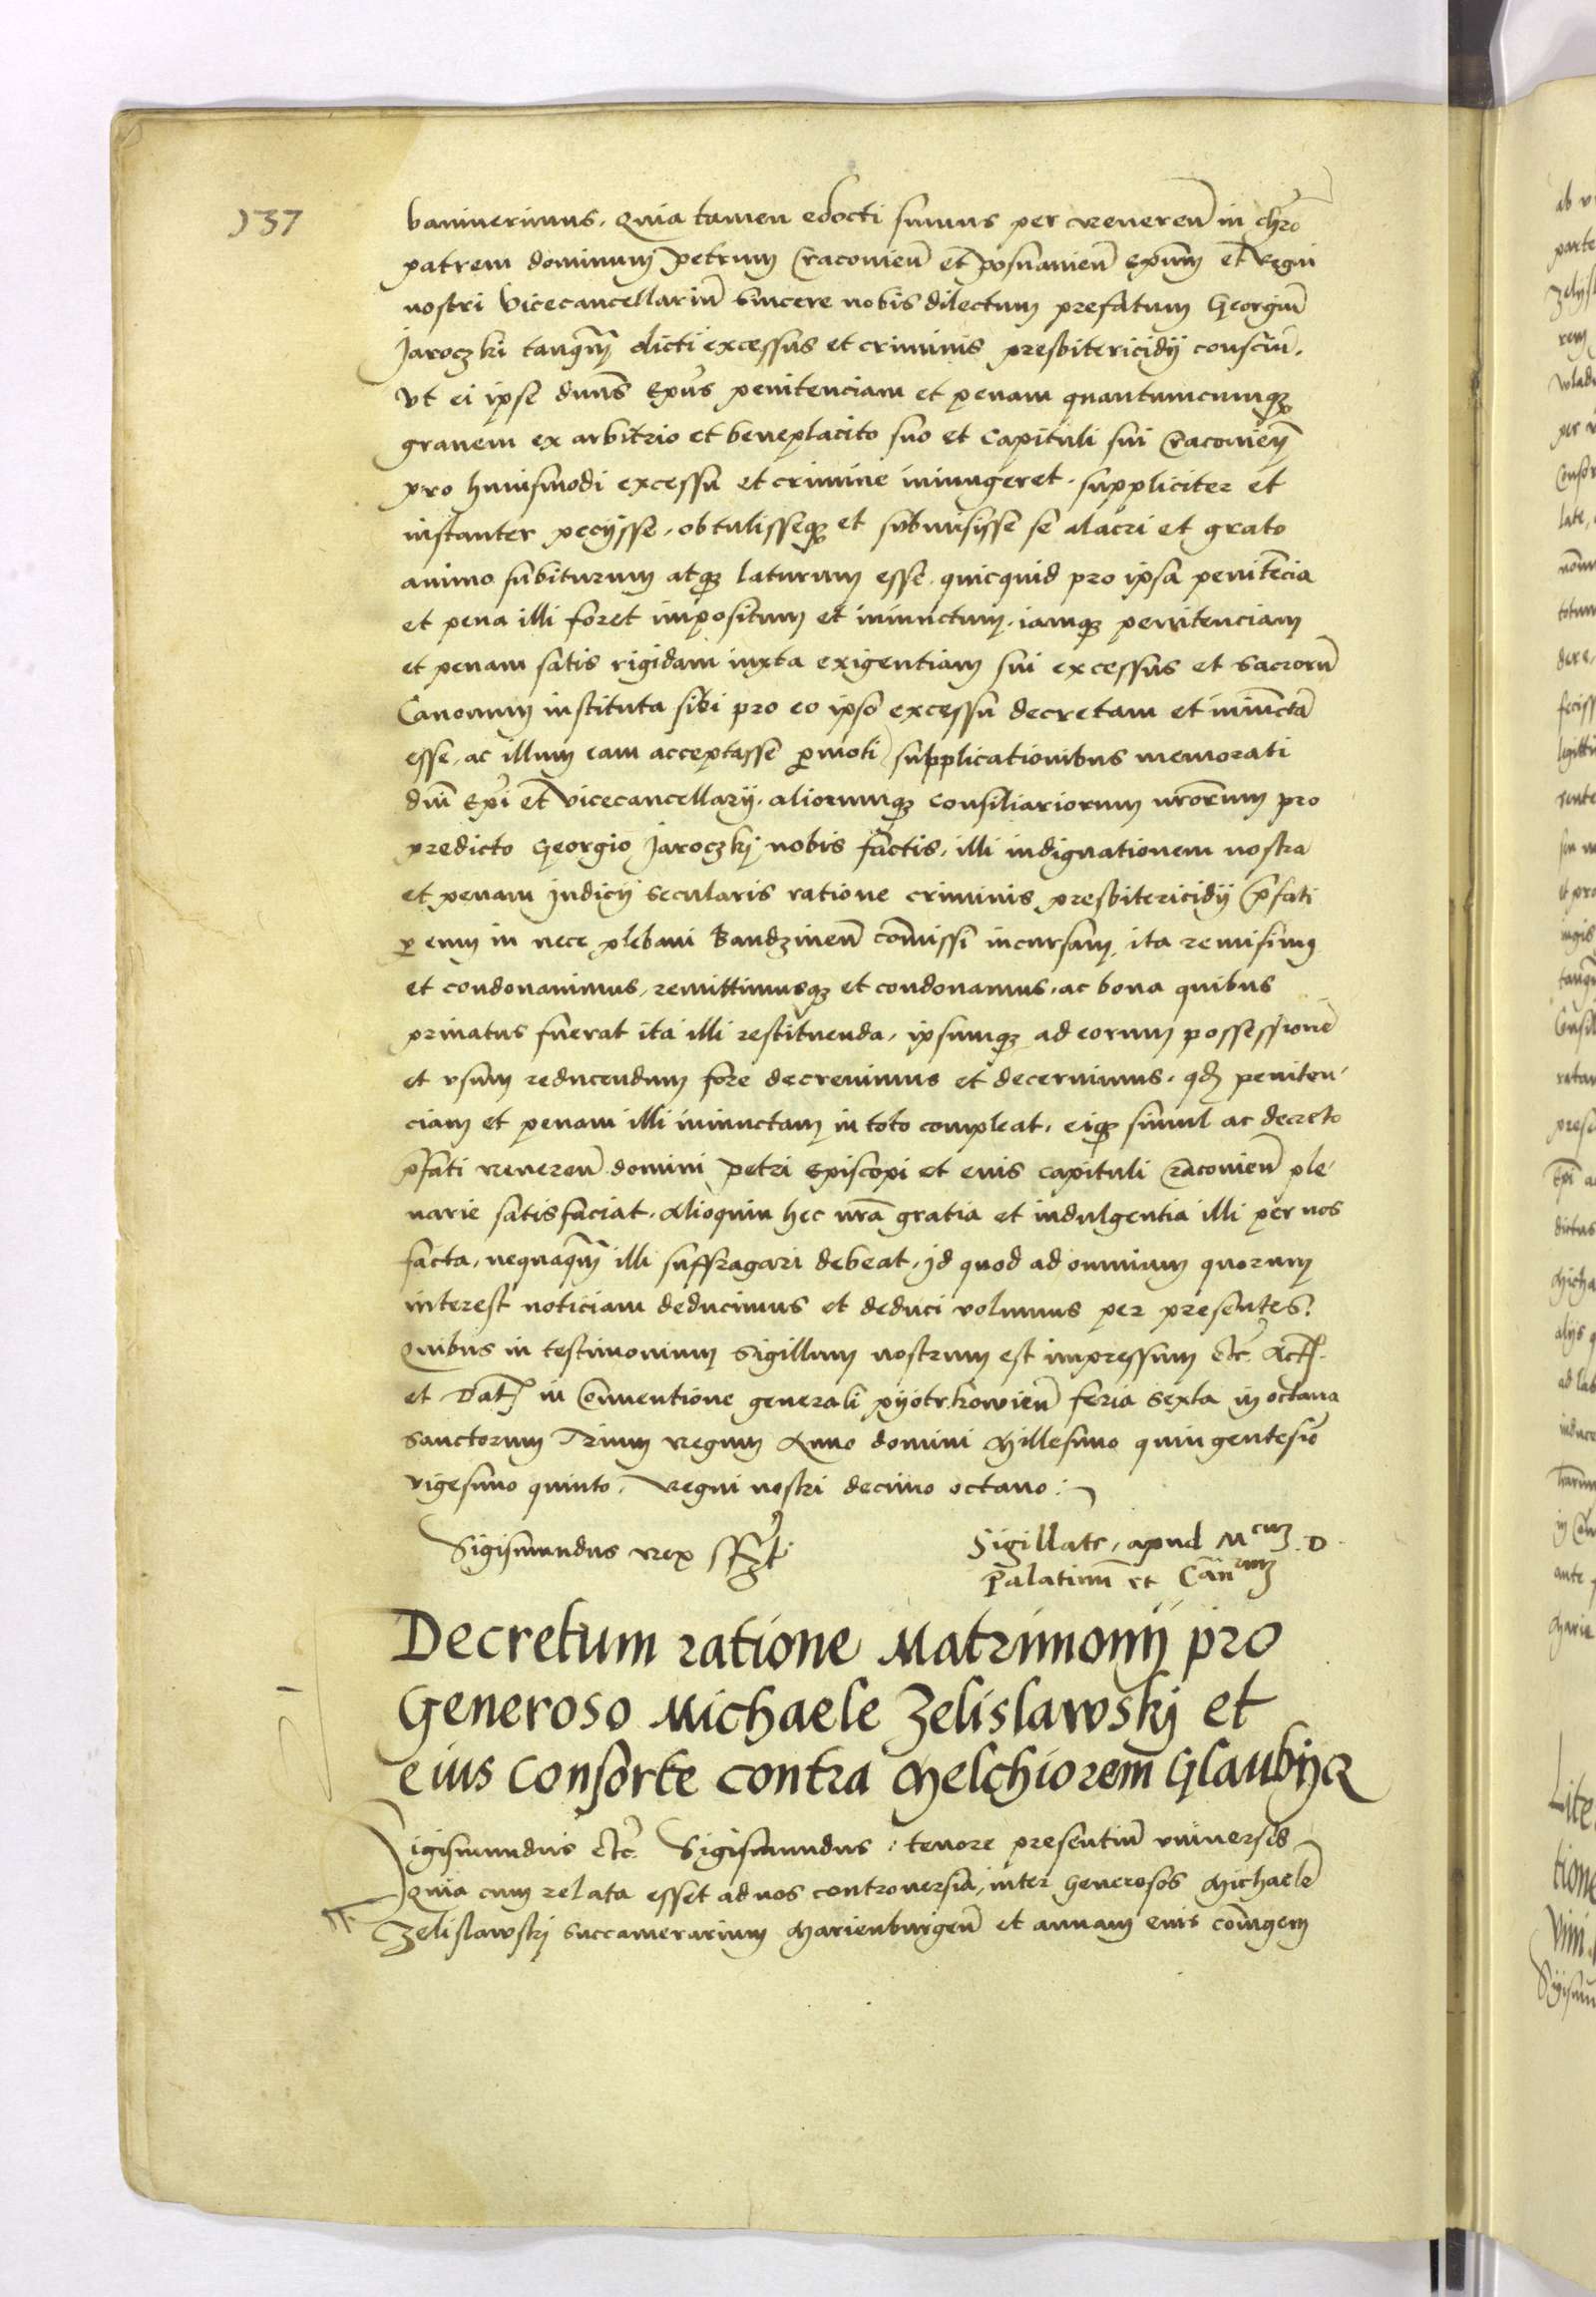 137
baniverimus. Quia tamen edocti sumus per Reveren̄ in chr̄o
patrem dominum Petrum Cracovien̄ et Posnanien̄ Ep̄um et Regni
nostri Vicecancellariū sincere nobis dilectum prefatum Georgiū
Jaroczki tanq̄ dicti excessus et criminis presbitericidij consciū.
Vt ei ipse dn̄us Ep̄us penitenciam et penam quantumcumqꝫ
gravem ex arbitrio et beneplacito suo et Capituli sui Cracovien̄
pro huiusmodi excessu et crimine iniungeret. suppliciter et
instanter pecijsse. obtulisseqꝫ et submisisse se alacri et grato
animo subiturum atqꝫ laturum esse. quicquid pro ipsa penitēcia
et pena illi foret impositum et iniunctum. iamqꝫ penitenciam
et penam satis rigidam iuxta exigentiam sui excessus et sacrorū
Canonum instituta sibi pro eo ipso excessu decretam et iniūctā
esse. ac illum eam acceptasse ꝑmoti supplicationibus memorati
dn̄i Ep̄i et Vicecancellarij. aliorumqꝫ consiliariorum nr̄orum pro
predicto Georgio Jaroczkj nobis factis. illi indignationem nostrā
et penam Judicij secularis ratione criminis presbitericidij p̄fati
ꝑ eum in nece plebani Bandzinen̄ com̄issi incursam. ita remisimus
et condonavimus. remittimusqꝫ et condonamus. ac bona quibus
privatus fuerat ita illi restituenda. ipsumqꝫ ad eorum possessionē
et vsum reducendum fore decrevimus et decernimus. qđ peniten⸗
ciam et penam illi iniunctam in toto compleat. eiqꝫ simul ac decreto
p̄fati Reveren̄ domini Petri Episcopi et eius capituli Cracovien̄ ple⸗
narie satisfaciat. Alioquin hec nr̄a gratia et indulgentia illi per nos
facta. nequaq̄ illi suffragari debeat. Id quod ad omnium quorum
interest noticiam deducimus et deduci volumus per presentes.
Quibus in testimonium Sigillum nostrum est impressum etc̄. Act.
et Dat. in Conventione generali Pijotrkowien̄ feria sexta in octava
Sanctorum Trium Regum Anno domini Millesimo quingentesīo
vigesimo quinto. Regni nostri decimo octavo.
Sigismundus Rex sszt
Sigillate. apud Mcum D.
Palatinū et Can̄rium
Decretum ratione Matrimonij pro
Generoso Michaele Zelislawskj et
eius consorte contra Melchiorem Glaubijcz
Sigismundus etc̄. Sigismundus. tenore presentiū vniversis
Quia cum relata esset ad nos controversia. inter Generosos Michaelē
Zelislawskj succamerarium Marienburgen̄ et annam eius coniūgem